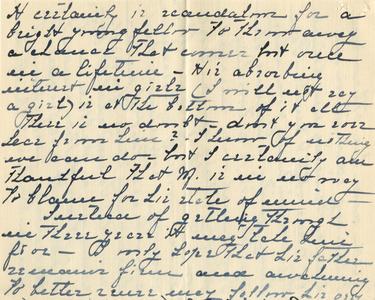 It certainly is scandalous for a
bright young fellow to throw away
a chance that comes but once
in a lifetime – His absorbing
interest in girls (I will not say
a girl) is at the bottom of it all
There is no doubt – don't you ever
hear from him? – I know of nothing
we can do – but I certainly am
thankful that M. is in no way
to blame for his state of mind –
Instead of getting through
in three years it may take him
five – I only hope that his father
remains firm and awakening
to better sense may follow his